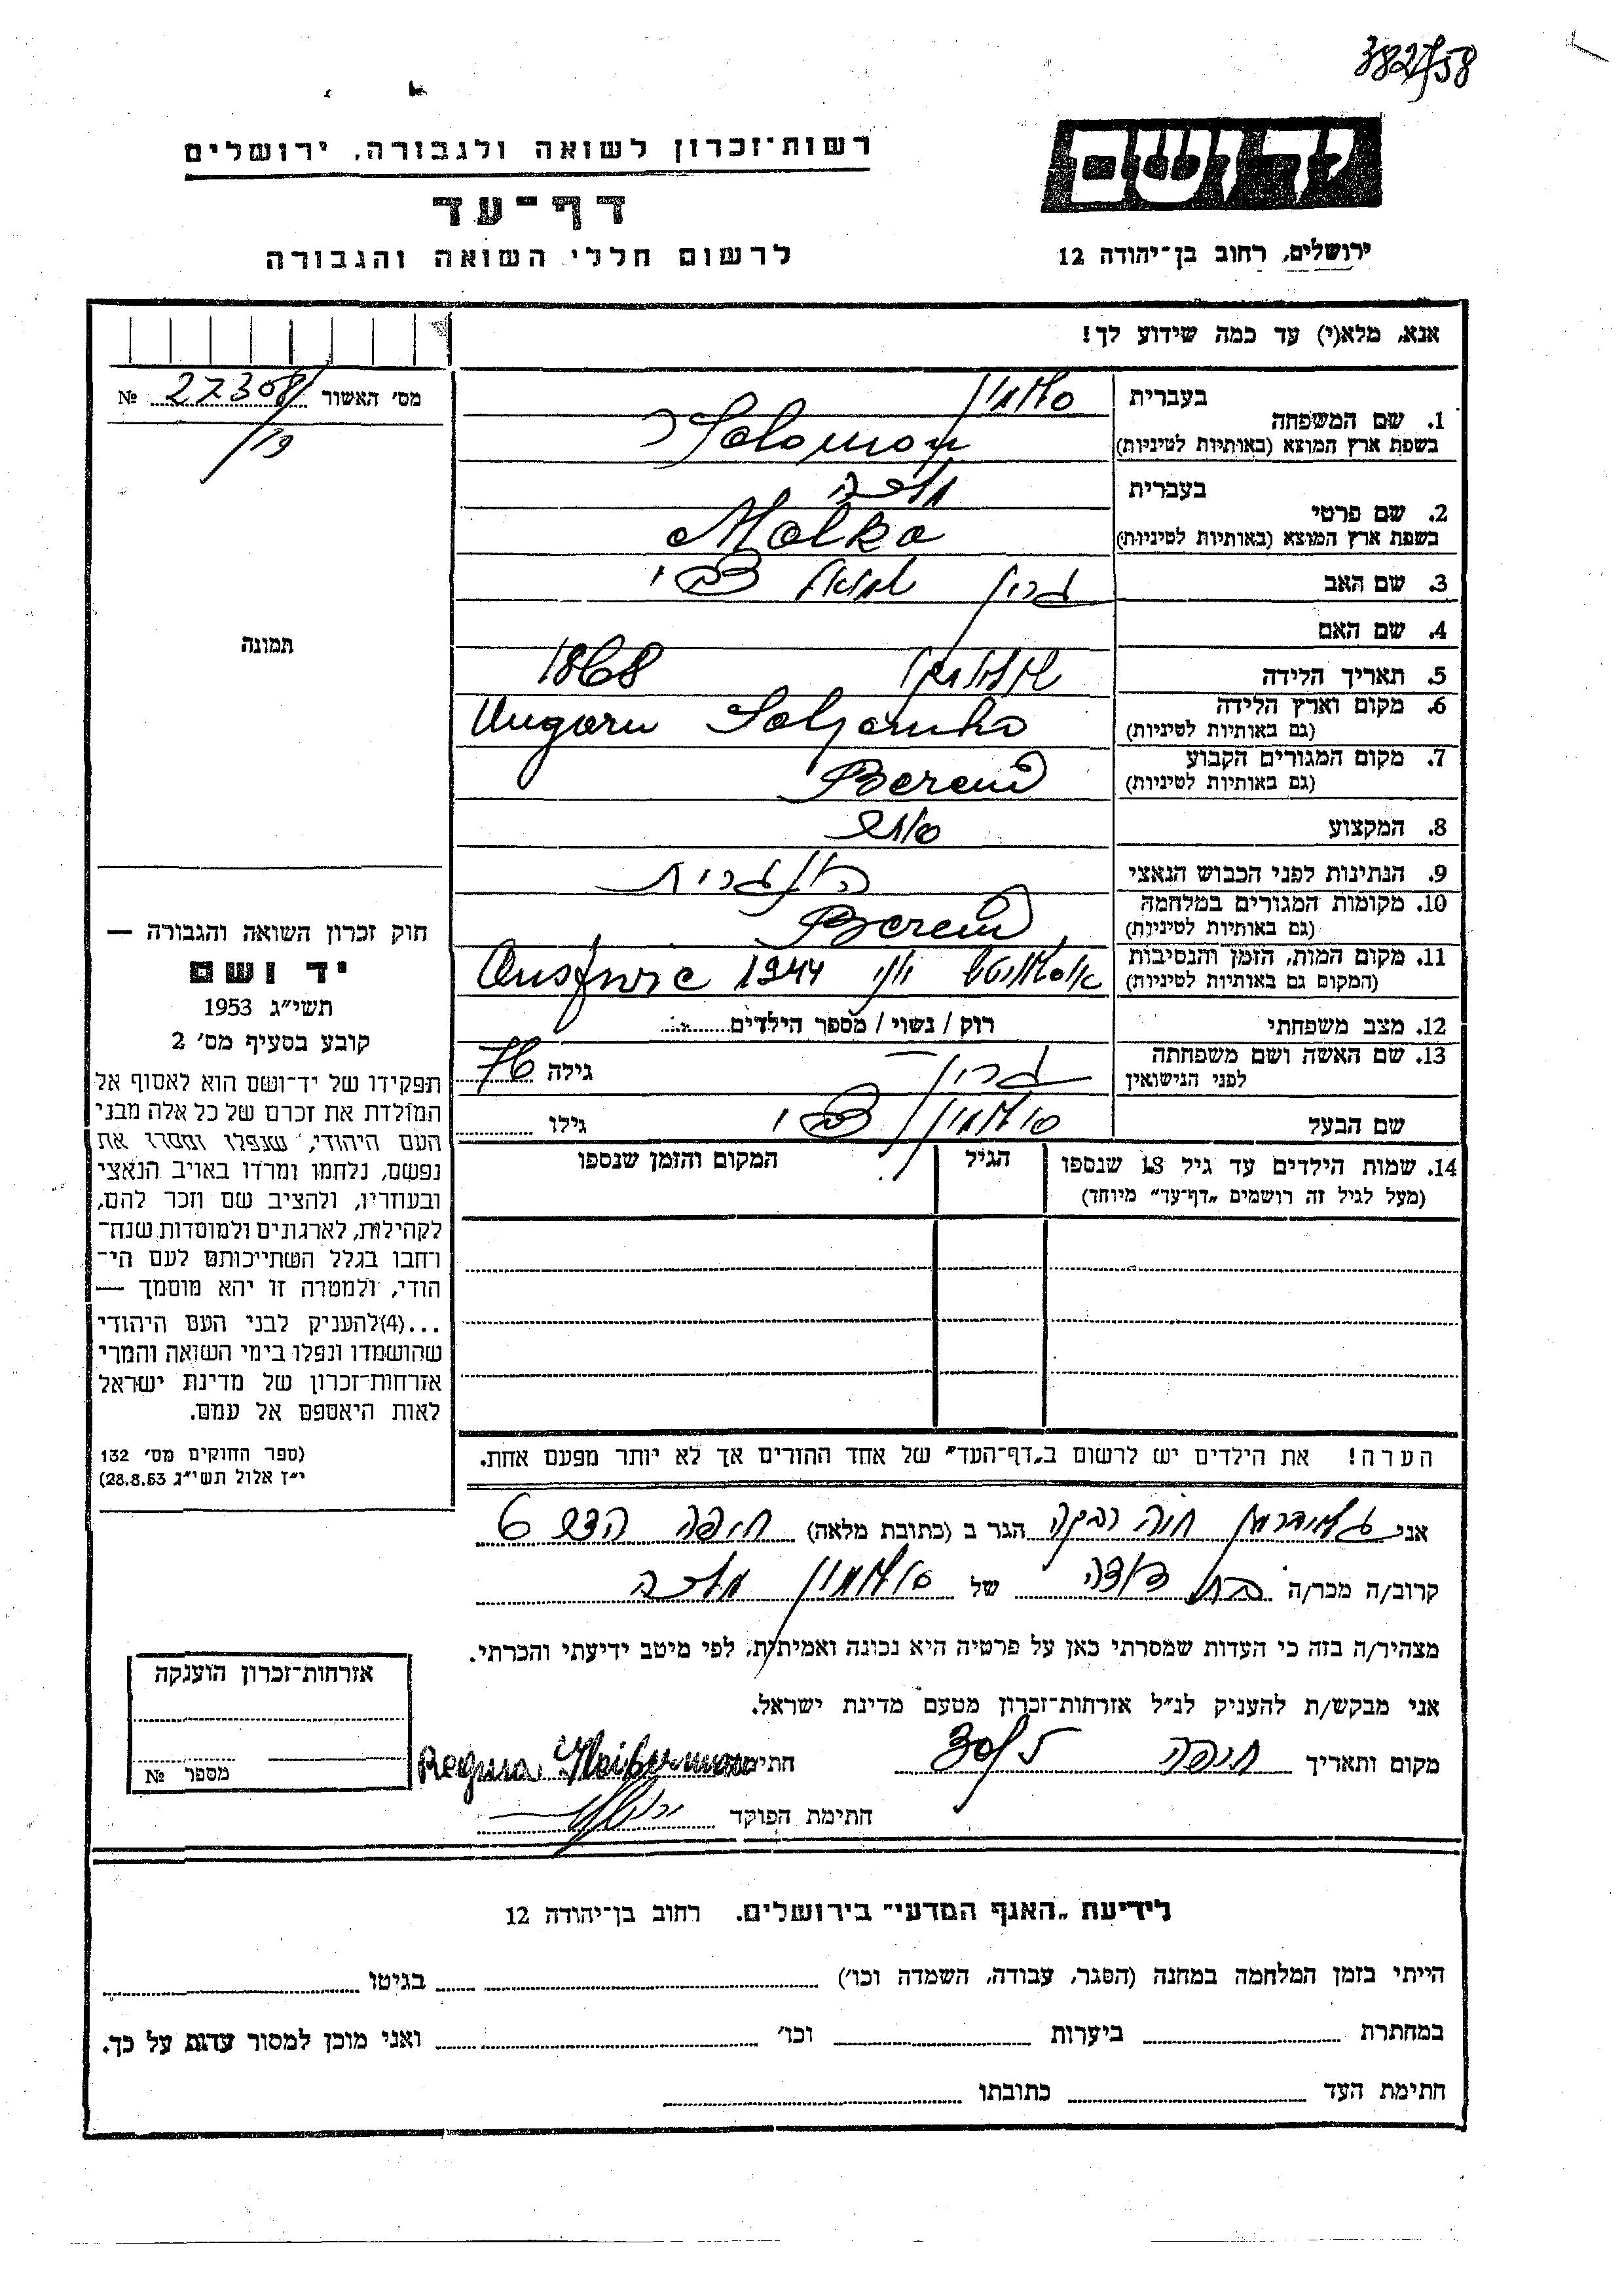 382/58
יד ושם
רשות־זכרון לשואה ולגבורה, ירושלים
דף־עד
לרשום חללי השואה והגבורה
ירושלים, רחוב בן־יהודה 12
אנא, מלא(י) עד כמה שידוע לך!
מס׳ האשור 27308 №
1. שם המשפחה
בעברית סלומון
בשפת ארץ המוצא (באותיות לטיניות) Solomon
2. שם פרטי
בעברית מלכה
בשפת ארץ המוצא (באותיות לטיניות) Malka
3. שם האב גרין שמואל צבי
4. שם האם
5. תאריך הלידה 1868
6. מקום וארץ הלידה
(גם באותיות לטיניות) Ungarn
7. מקום המגורים הקבוע
(גם באותיות לטיניות)
8. המקצוע סוחר
9. הנתינות לפני הכבוש הנאצי הונגרית
10. מקומות המגורים במלחמה
(גם באותיות לטיניות)
11. מקום המות, הזמן והנסיבות
(המקום גם באותיות לטיניות) 1944
12. מצב משפחתי רוק / נשוי / מספר הילדים
13. שם האשה ושם משפחתה
לפני הנישואין גרין גילה 76
שם הבעל סולומון צבי גילו
14. שמות הילדים עד גיל 18 שנספו
(מעל לגיל זה רושמים „דף־עד״ מיוחד)
הגיל
המקום והזמן שנספו
הערה! את הילדים יש לרשום ב„דף־העד״ של אחד ההורים אך לא יותר מפעם אחת.
תמונה
חוק זכרון השואה והגבורה —
יד ושם
תשי״ג 1953
קובע בסעיף מס׳ 2
תפקידו של יד־ושם הוא לאסוף אל
המולדת את זכרם של כל אלה מבני
העם היהודי, שנפלו ומסרו את
נפשם, נלחמו ומרדו באויב הנאצי
ובעוזריו, ולהציב שם וזכר להם,
לקהילות, לארגונים ולמוסדות שנח־
רחבו בגלל השתייכותם לעם הי־
הודי, ולמטרה זו יהא מוסמך —
...(4)להעניק לבני העם היהודי
שהושמדו ונפלו בימי השואה והמרי
אזרחות־זכרון של מדינת ישראל
לאות היאספם אל עמם.
(ספר החוקים מס׳ 132
י״ז אלול תשי״ג 28.8.53)
אני חיה רבקה הגר ב (כתובת מלאה) חיפה
קרוב/ה מכר/ה בת דודה של סולומון מלכה
מצהיר/ה בזה כי העדות שמסרתי כאן על פרטיה היא נכונה ואמיתית, לפי מיטב ידיעתי והכרתי.
אני מבקש/ת להעניק לנ״ל אזרחות־זכרון מטעם מדינת ישראל.
מקום ותאריך חיפה חתימה
חתימת הפוקד
אזרחות־זכרון הוענקה
מספר №
לידיעת „האגף המדעי״ בירושלים. רחוב בן־יהודה 12
הייתי בזמן המלחמה במחנה (הסגר, עבודה, השמדה וכו׳) בגיטו
במחתרת ביערות וכו׳ ואני מוכן למסור עדות על כך.
חתימת העד כתובתו